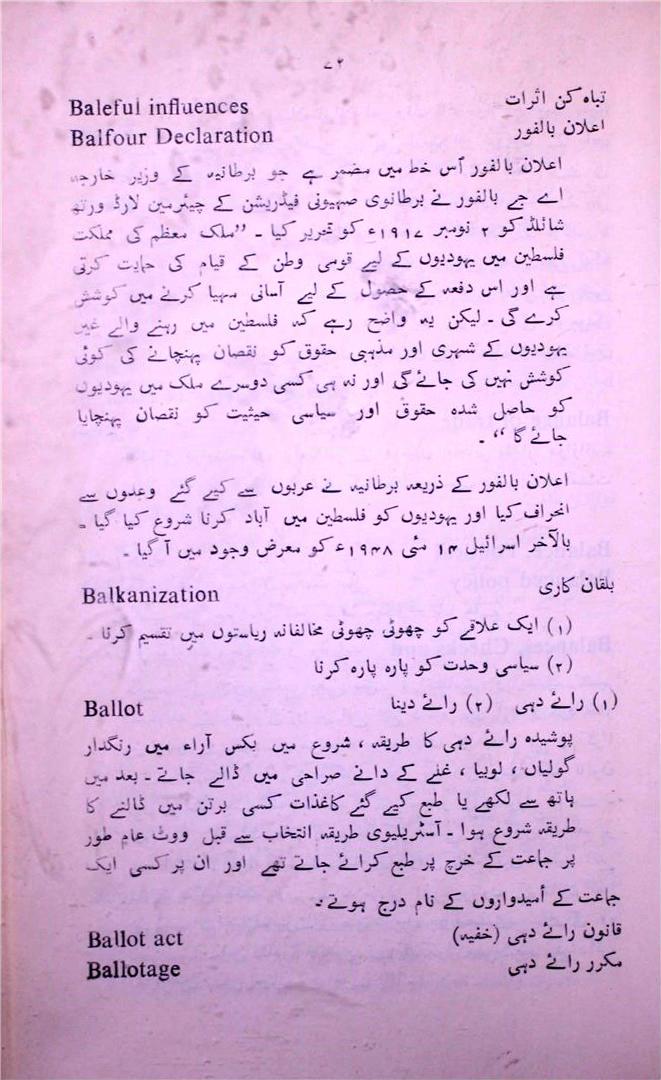 ۷۲
Baleful influences تباہ کن اثرات
Balfour Declaration اعلان بالفور
اعلان بالفور اُس خط میں مضمر ہے جو برطانیہ کے وزیر خارجہ
اے جے بالفور نے برطانوی صہیونی فیڈریشن کے چیئرمین لارڈ ورتھ
شائلڈ کو ۲ نومبر ۱۹۱۷ء کو تحریر کیا ۔ ”ملک معظم کی مملکت
فلسطین میں یہودیوں کے لیے قومی وطن کے قیام کی حمایت کرتی
ہے اور اس دفعہ کے حصول کے لیے آسانی مہیا کرنے میں کوشش
کرے گی ۔ لیکن یہ واضح رہے کہ فلسطین میں رہنے والے غیر
یہودیوں کے شہری اور مذہبی حقوق کو نقصان پہنچانے کی کوئی
کوشش نہیں کی جائے گی اور نہ ہی کسی دوسرے ملک میں یہودیوں
کو حاصل شدہ حقوق اور سیاسی حیثیت کو نقصان پہنچایا
جائے گا “ ۔
اعلان بالفور کے ذریعہ برطانیہ نے عربوں سے کیے گئے وعدوں سے
انحراف کیا اور یہودیوں کو فلسطین میں آباد کرنا شروع کیا گیا ۔
بالآخر اسرائیل ۱۴ مئی ۱۹۴۸ء کو معرض وجود میں آ گیا ۔
Balkanization بلقان کاری
(۱) ایک علاقے کو چھوٹی چھوٹی مخالفانہ ریاستوں میں تقسیم کرنا ۔
(۲) سیاسی وحدت کو پارہ پارہ کرنا
Ballot (۱) رائے دہی (۲) رائے دینا
پوشیدہ رائے دہی کا طریقہ ، شروع میں بکس آراء میں رنگدار
گولیاں، لوبیا ، غلے کے دانے صراحی میں ڈالے جاتے ۔ بعد میں
ہاتھ سے لکھے یا طبع کیے گئے کاغذات کسی برتن میں ڈالنے کا
طریقہ شروع ہوا ۔ آسٹریلیوی طریقہ انتخاب سے قبل ووٹ عام طور
پر جماعت کے خرچ پر طبع کرائے جاتے تھے اور ان پر کسی ایک
جماعت کے اُمیدواروں کے نام درج ہوتے ۔
Ballot act قانون رائے دہی (خفیہ)
Ballotage مکرر رائے دہی